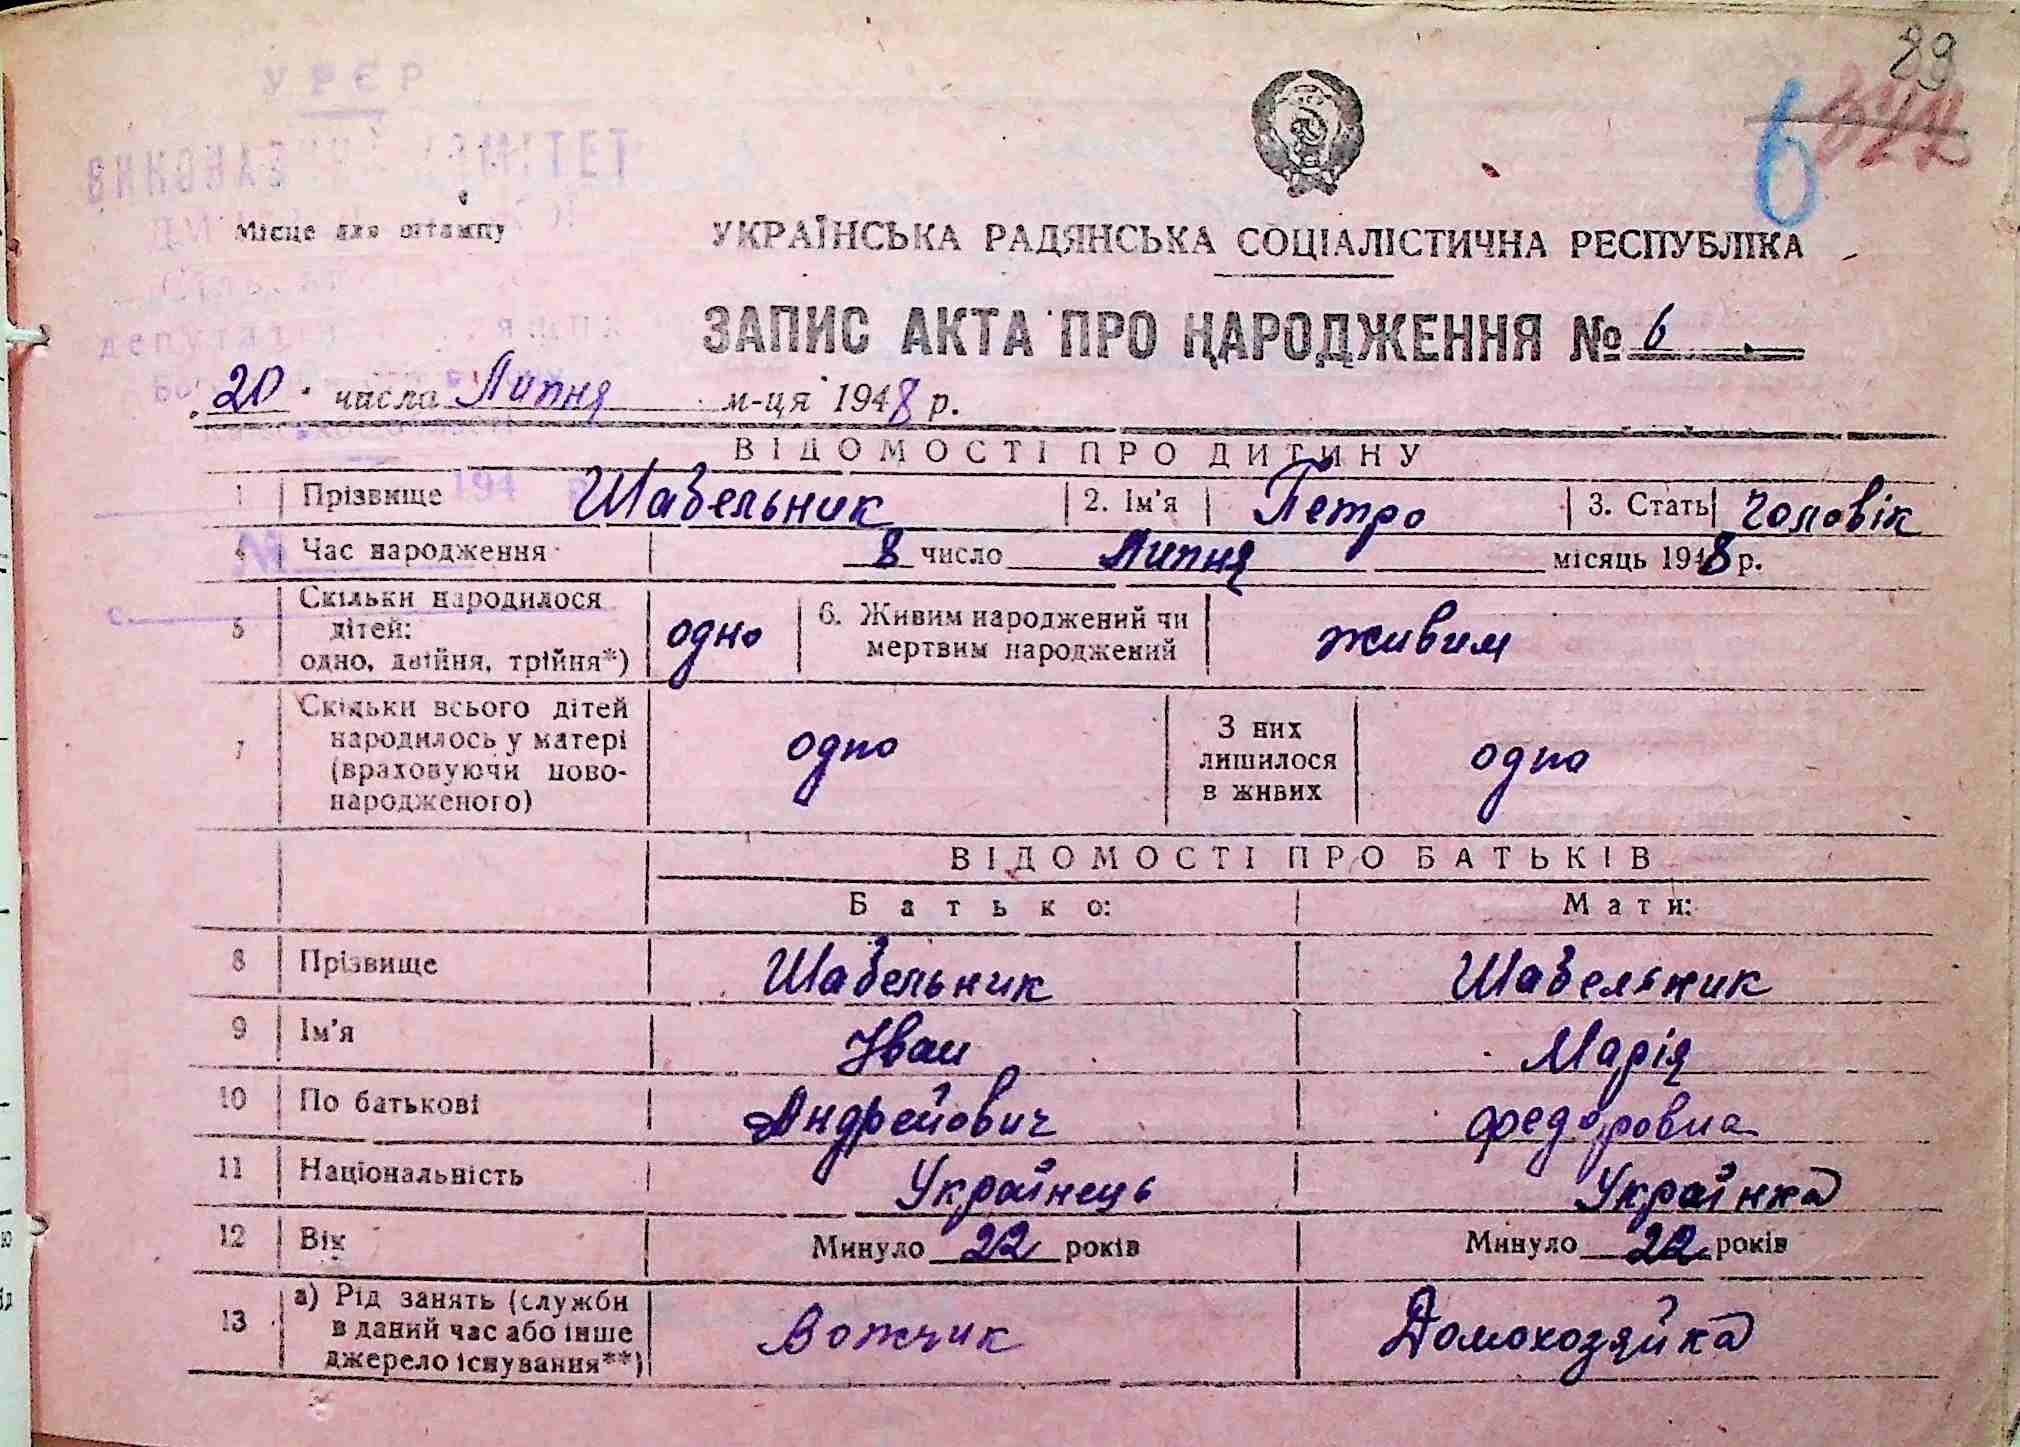 89
6 822
УРЄР
ВИКОНАВЧИЙ КОМІТЕТ
Місце для штампу
УКРАЇНСЬКА РАДЯНСЬКА СОЦІАЛІСТИЧНА РЕСПУБЛІКА
ЗАПИС АКТА ПРО НАРОДЖЕННЯ № 6
20 числа Липня м-ця 1948 р.
ВІДОМОСТІ ПРО ДИТИНУ
1 Прізвище Шабельник 2. Ім'я Петро 3. Стать Чоловік
194
4 Час народження 8 число Липня місяць 1948 р.
№
5 Скільки народилося дітей: одно, двійня, трійня*) одно 6. Живим народжений чи мертвим народжений живим
с.
7 Скільки всього дітей народилось у матері (враховуючи ново-народженого) одно З них лишилося в живих одно
ВІДОМОСТІ ПРО БАТЬКІВ
Батько: Мати:
8 Прізвище Шабельник Шабельник
9 Ім'я Іван Марія
10 По батькові Андрейович Федоровна
11 Національність Українець Українка
12 Вік Минуло 22 років Минуло 22 років
13 а) Рід занять (служби в даний час або інше джерело існування**) Вожчик Домохозяйка